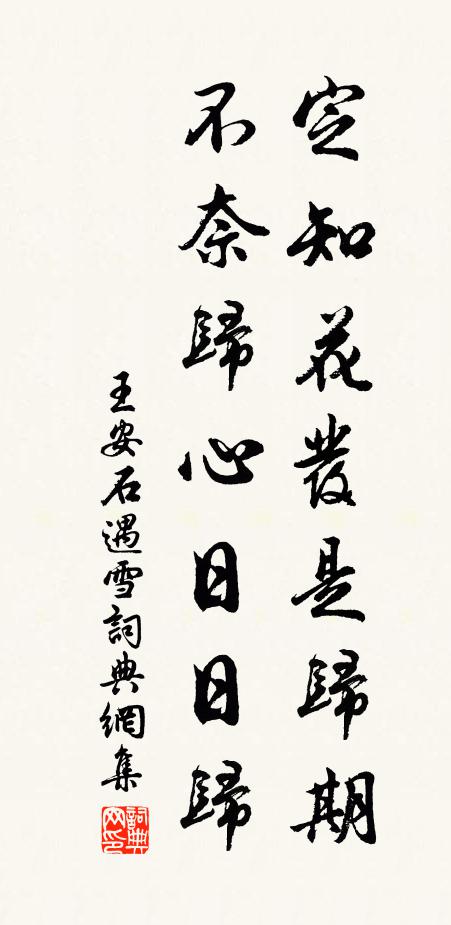 定知花發是歸期
不奈歸心日日歸
王安石遇雪詞典網集
詞典網印